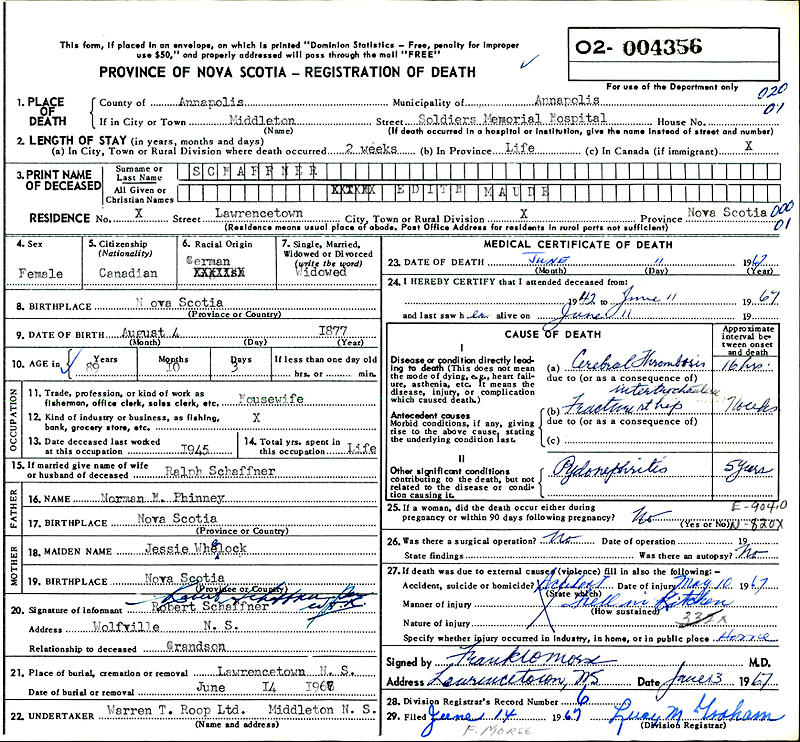 This form, if placed in an envelope, on which is printed "Dominion Statistics – Free, penalty for improper
use $50," and properly addressed will pass through the mail "FREE"
O2- 004356
PROVINCE OF NOVA SCOTIA – REGISTRATION OF DEATH
For use of the Department only
020
01
1. PLACE OF DEATH
County of Annapolis Municipality of Annapolis
If in City or Town Middleton Street Soldiers Memorial Hospital House No.
(Name) (If death occurred in a hospital or institution, give the name instead of street and number)
2. LENGTH OF STAY (in years, months and days)
(a) In City, Town or Rural Division where death occurred 2 weeks (b) In Province Life (c) In Canada (if immigrant) X
3. PRINT NAME OF DECEASED
Surname or Last Name SCHAFFNER
All Given or Christian Names EDITH MAUDE
RESIDENCE No. X Street Lawrencetown City, Town or Rural Division X Province Nova Scotia 000
01
(Residence means usual place of abode. Post Office Address for residents in rural ports not sufficient)
4. Sex
Female
5. Citizenship
(Nationality)
Canadian
6. Racial Origin
German
7. Single, Married,
Widowed or Divorced
(write the word)
Widowed
8. BIRTHPLACE Nova Scotia
(Province or Country)
9. DATE OF BIRTH August 4 1877
(Month) (Day) (Year)
10. AGE in Years Months Days If less than one day old
89 10 3 hrs. or min.
OCCUPATION
11. Trade, profession, or kind of work as
fishermon, office clerk, sales clerk, etc. Housewife
12. Kind of industry or business, as fishing,
bank, grocery store, etc. X
13. Date deceased last worked
at this occupation 1945
14. Total yrs. spent in
this occupation Life
15. If married give name of wife
or husband of deceased Ralph Schaffner
FATHER
16. NAME Norman M. Phinney
17. BIRTHPLACE Nova Scotia
(Province or Country)
MOTHER
18. MAIDEN NAME Jessie Whelock
19. BIRTHPLACE Nova Scotia
(Province or Country)
20. Signature of informant Robert Schaffner
Address Wolfville N. S.
Relationship to deceased Grandson
21. Place of burial, cremation or removal Lawrencetown N. S.
Date of burial or removal June 14 1967
22. UNDERTAKER Warren T. Roop Ltd. Middleton N.S.
(Name and address)
MEDICAL CERTIFICATE OF DEATH
23. DATE OF DEATH June 11 1967
(Month) (Day) (Year)
24. I HEREBY CERTIFY that I attended deceased from:
1942 to June 11 1967
and last saw her alive on June 11 19
CAUSE OF DEATH
Approximate
interval be-
tween onset
and death
I
Disease or condition directly lead-
ing to death (This does not mean
the mode of dying, e.g., heart fail-
ure, asthenia, etc. It means the
disease, injury, or complication
which caused death.)
(a) Cerebral Thrombosis 16 hrs.
due to (or as a consequence of)
Antecedent causes
Morbid conditions, if any, giving
rise to the above cause, stating
the underlying condition last.
(b) Fracture hip weeks
due to (or as a consequence of)
(c)
II
Other significant conditions
contributing to the death, but not
related to the disease or condi-
tion causing it.
Pyelonephritis 5 years
25. If a woman, did the death occur either during
pregnancy or within 90 days following pregnancy? No (Yes or No)
E-904.0
N-820X
26. Was there a surgical operation? No Date of operation 19
State findings Was there an autopsy? No
27. If death was due to external causes (violence) fill in also the following:–
Accident, suicide or homicide? Accident Date of injury May 10 1967
(State which)
Manner of injury Fell in Kitchen
(How sustained)
Nature of injury
Specify whether injury occurred in industry, in home, or in public place Home
Signed by M.D.
Address Lawrencetown, NS Date 1967
28. Division Registrar's Record Number 6
29. Filed June 14 1967 Lucy M Graham
F. MORSE
(Division Registrar)